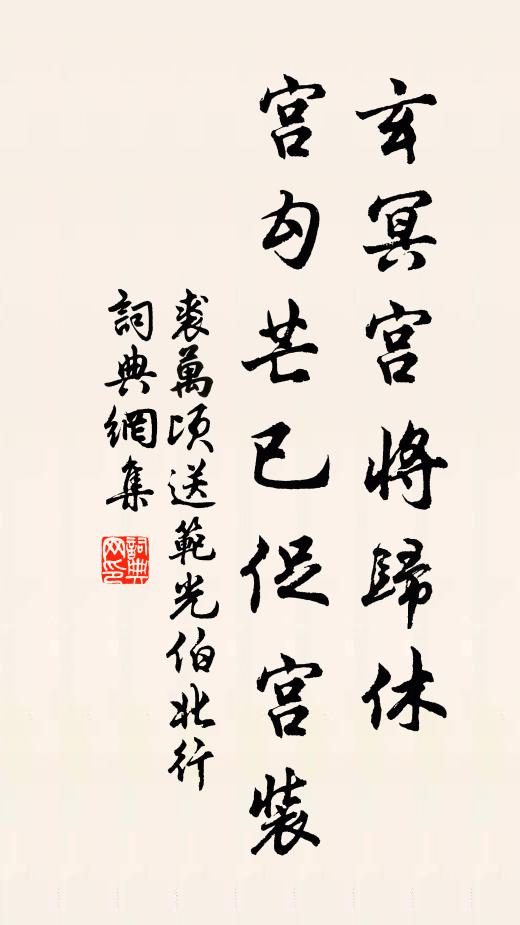 玄冥宫將歸休
宫勾芒已促宫裝
裘萬頃送範光伯北行
詞典網集
詞典
网印